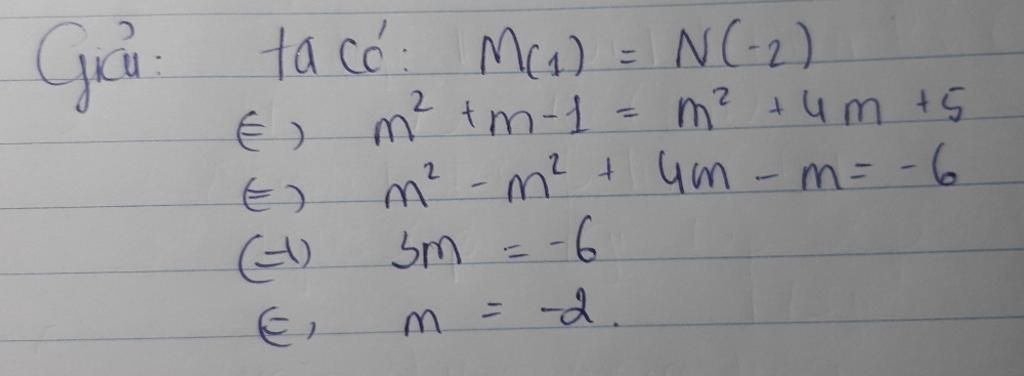 Giải: ta có: M(1) = N(-2)
⇔ m² + m - 1 = m² + 4m + 5
⇔ m² - m² + 4m - m = -6
⇔ 3m = -6
⇔ m = -2.